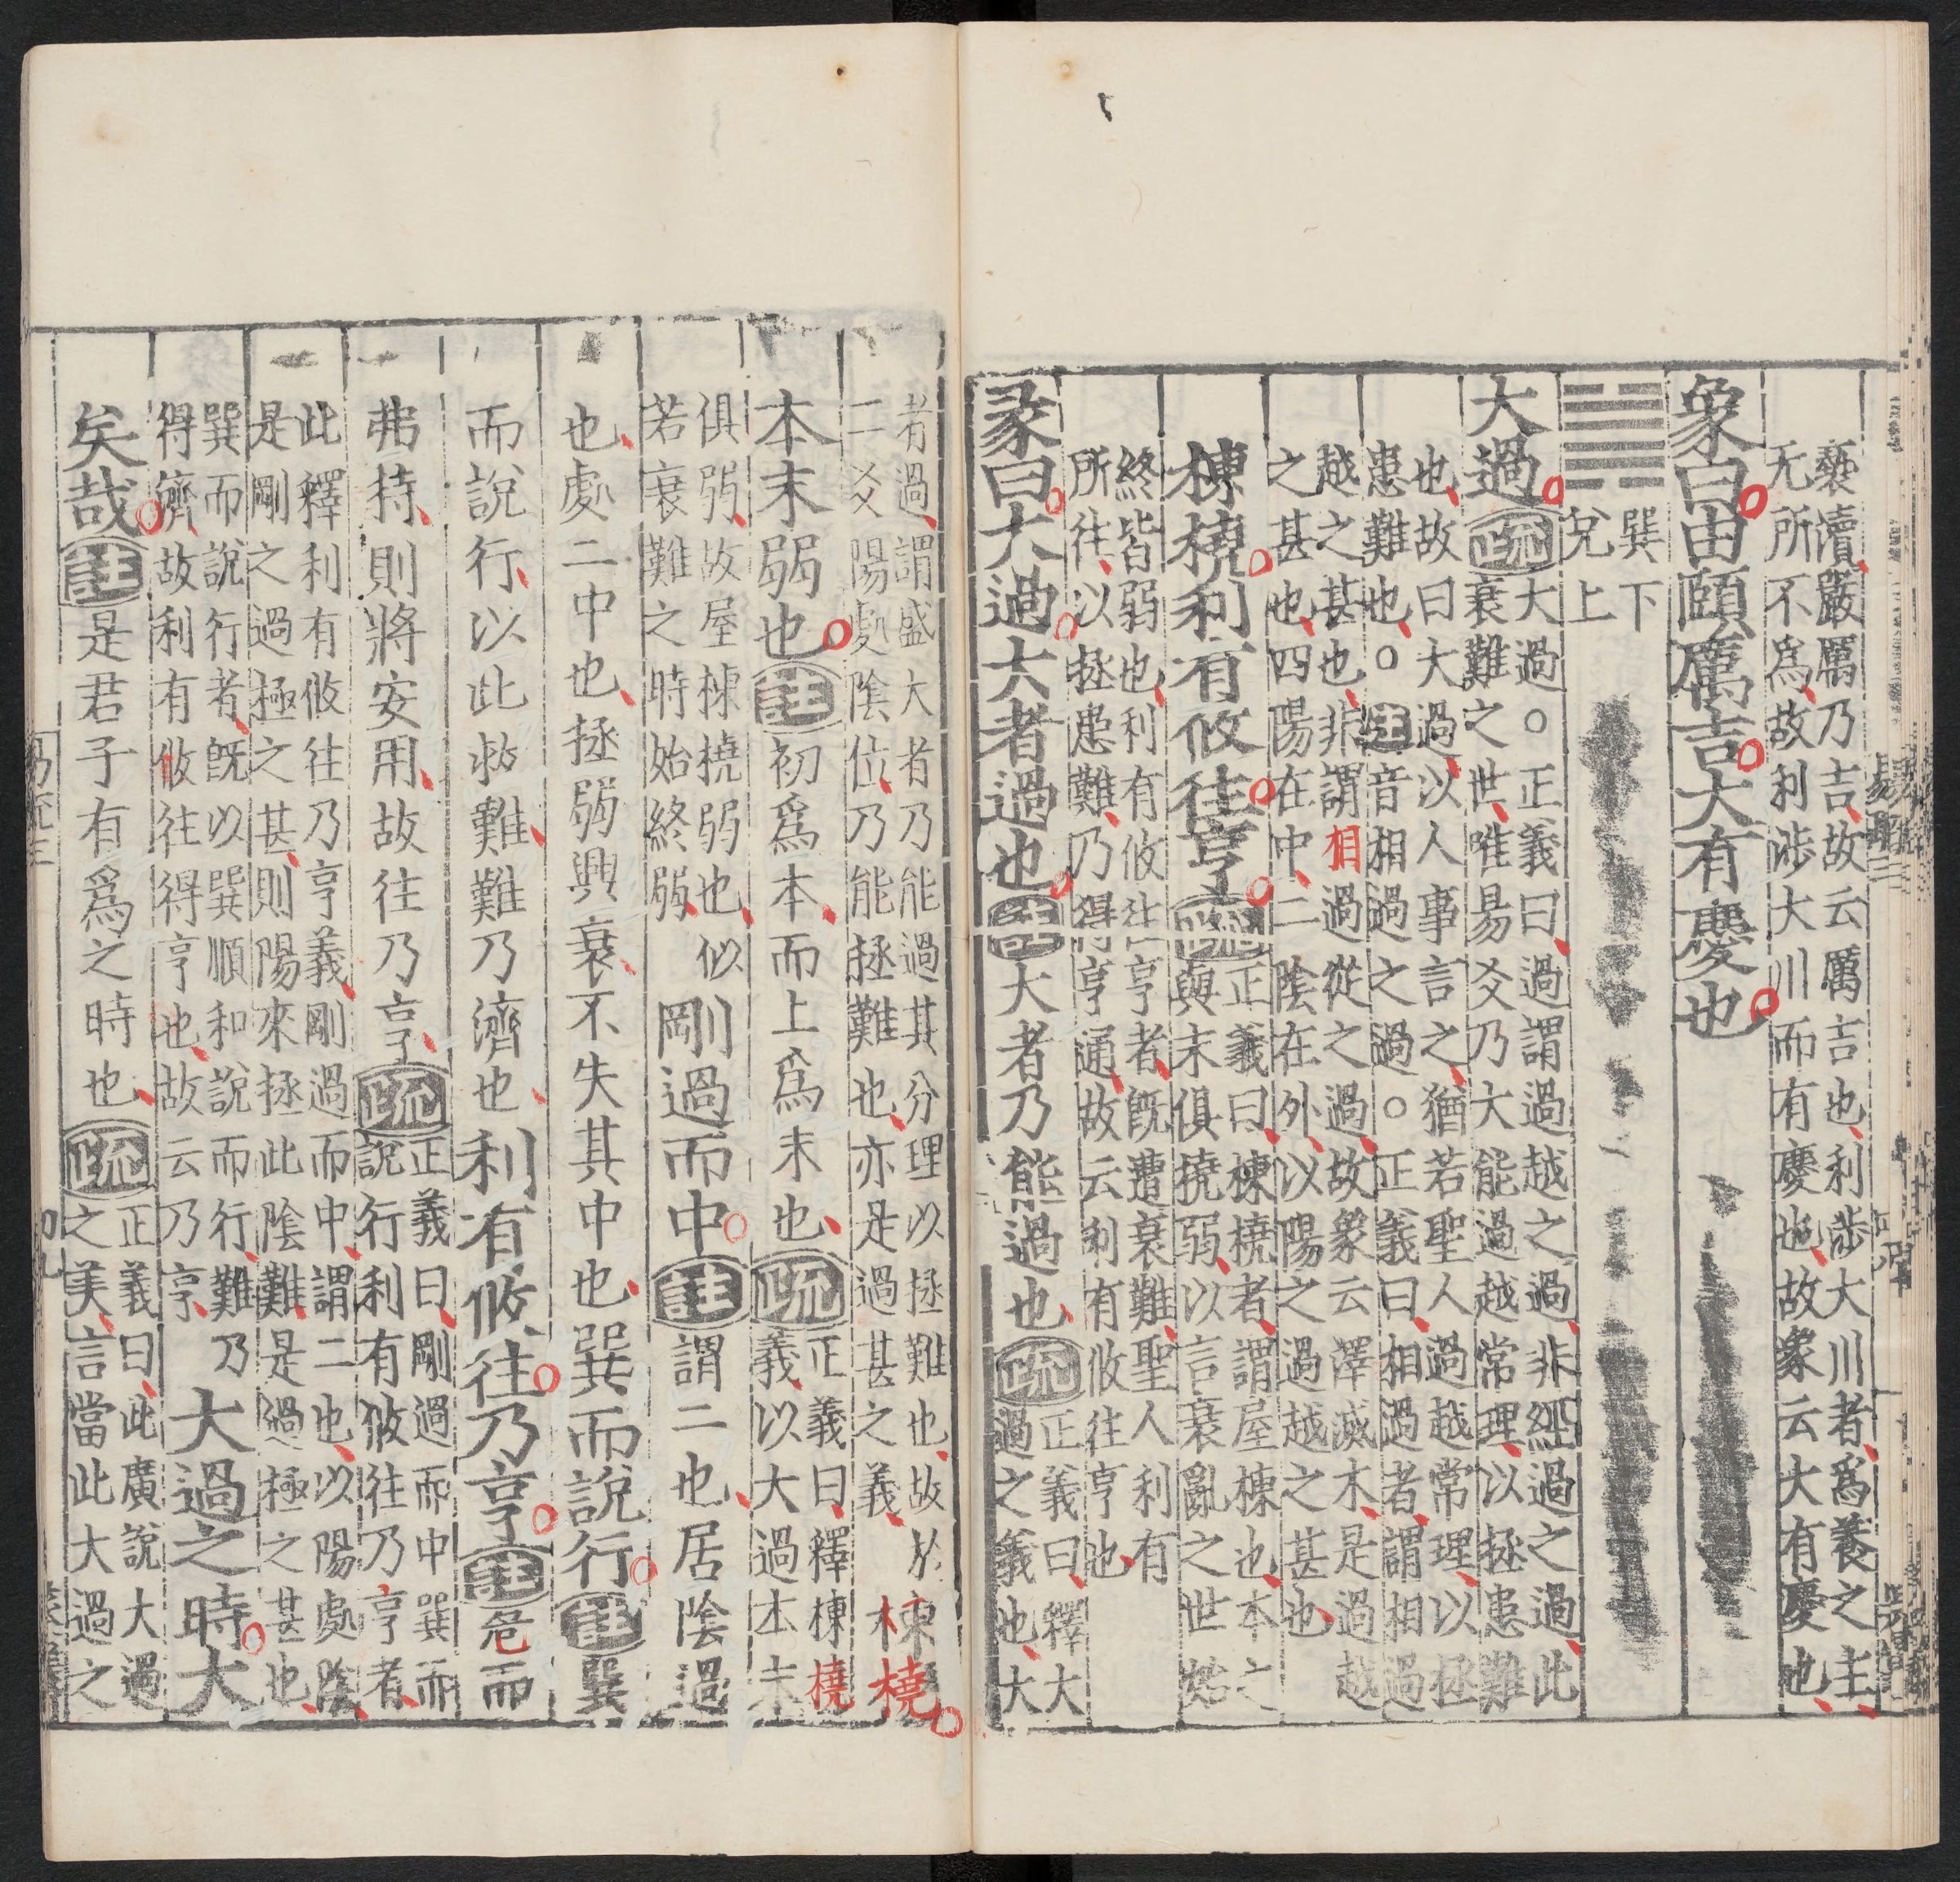 褻瀆嚴厲乃吉故云厲吉也利涉大川者爲養之主
无所不爲故利涉大川而有慶也故象云大有慶也
象曰由頤厲吉大有慶也
巽下
兌上
大過疏
大過○正義曰過謂過越之過非經過之過此
衰難之世唯易爻乃大能過越常理以拯患難
也故曰大過以人事言之猶若聖人過越常理以拯
患難也○注音相過之過○正義曰相過者謂相過
越之甚也非謂相過從之過故象云澤滅木是過越
之甚也四陽在中二陰在外以陽之過越之甚也
棟橈利有攸往亨疏
正義曰棟橈者謂屋棟也本之
與末俱撓弱以言衰亂之世始
終皆弱也利有攸往亨者既遭衰難聖人利有
所往以拯患難乃得亨通故云利有攸往亨也
彖曰大過大者過也註大者乃能過也疏
正義曰釋大
過之義也大
者過謂盛大者乃能過其分理以拯難也故於
二爻陽處陰位乃能拯難也亦是過甚之義
棟橈
本末弱也註初爲本而上爲末也疏
正義曰釋棟橈
義以大過本末
俱弱故屋棟撓弱也似
若衰難之時始終弱
剛過而中註謂二也居陰過
也處二中也拯弱興衰不失其中也巽而說行註巽
而說行以此救難難乃濟也利有攸往乃亨註危而
弗持則將安用故往乃亨疏
正義曰剛過而中巽而
說行利有攸往乃亨者
此釋利有攸往乃亨義剛過而中謂二也以陽處陰
是剛之過極之甚則陽來拯此陰難是過極之甚也
巽而說行者既以巽順和說而行難乃
得濟故利有攸往得亨也故云乃亨
大過之時大
矣哉註是君子有爲之時也疏
正義曰此廣說大過
之美言當此大過之